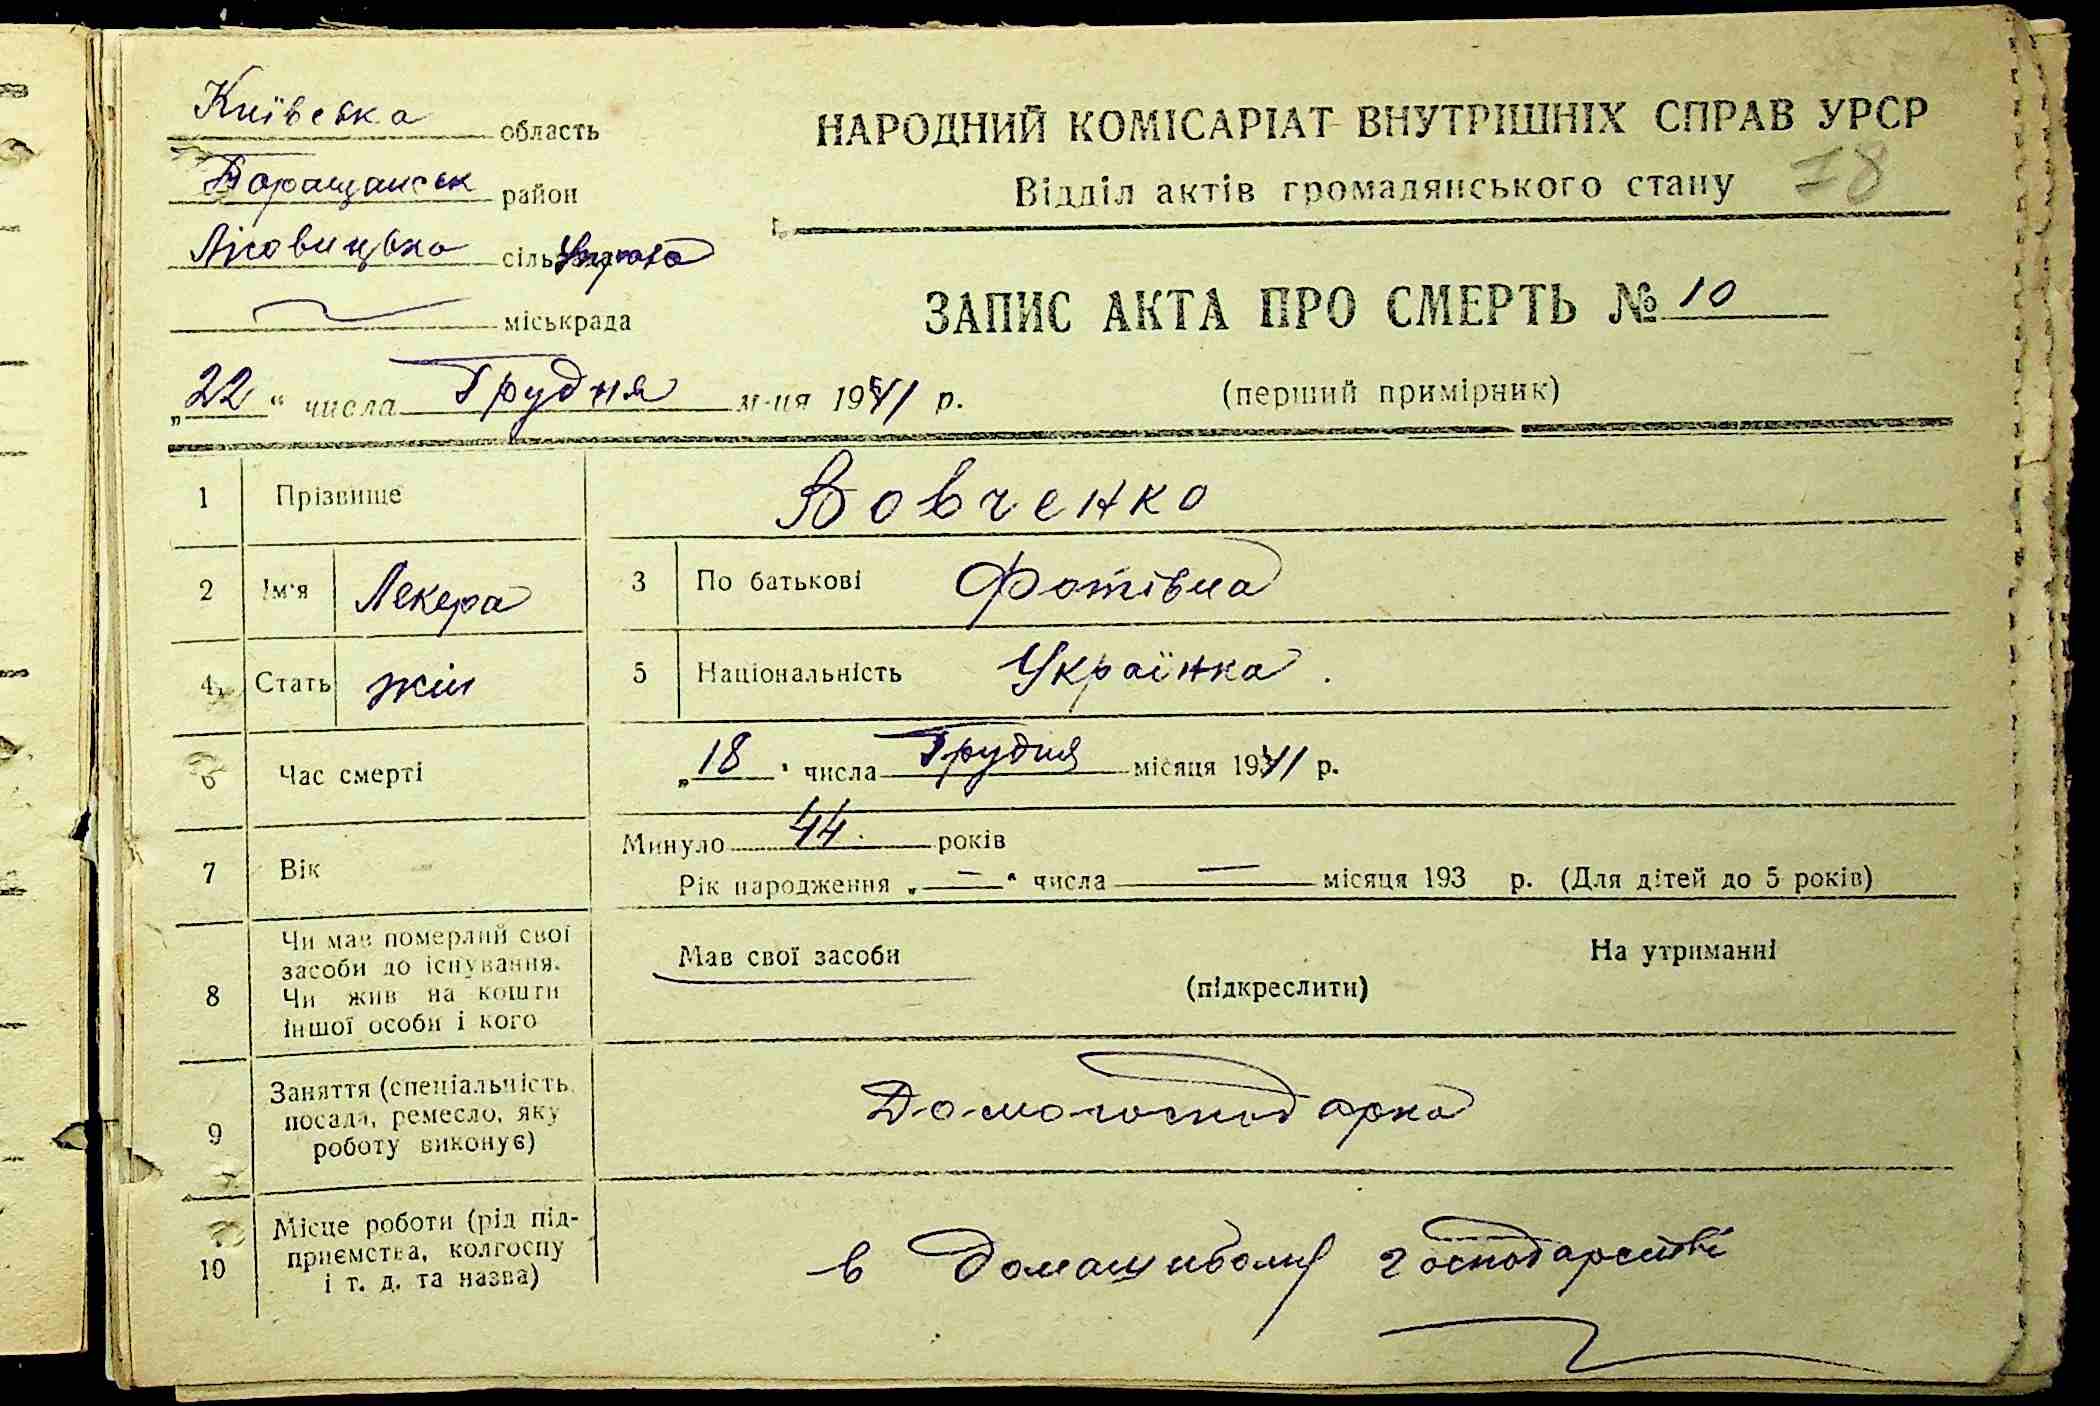 Київська область
НАРОДНИЙ КОМІСАРІАТ ВНУТРІШНІХ СПРАВ УРСР
Таращанськ район
Відділ актів громадянського стану 78
Лісовицька сільуправа
міськрада
ЗАПИС АКТА ПРО СМЕРТЬ № 10
„22“ числа Грудня м-ця 1941 р.
(перший примірник)
1 Прізвище Вовченко
2 Ім'я Лекера 3 По батькові Фотівна
4 Стать жін 5 Національність Українка.
6 Час смерті „18“ числа Грудня місяця 1941 р.
7 Вік Минуло 44 років
Рік народження „—“ числа — місяця 193 р. (Для дітей до 5 років)
8 Чи мав померлий свої засоби до існування.
Чи жив на кошти іншої особи і кого
Мав свої засоби На утриманні
(підкреслити)
9 Заняття (спеціальність,
посада, ремесло, яку
роботу виконує)
Домогосподарка
10 Місце роботи (рід під-
приємства, колгоспу
і т. д. та назва)
в Домашньому господарстві